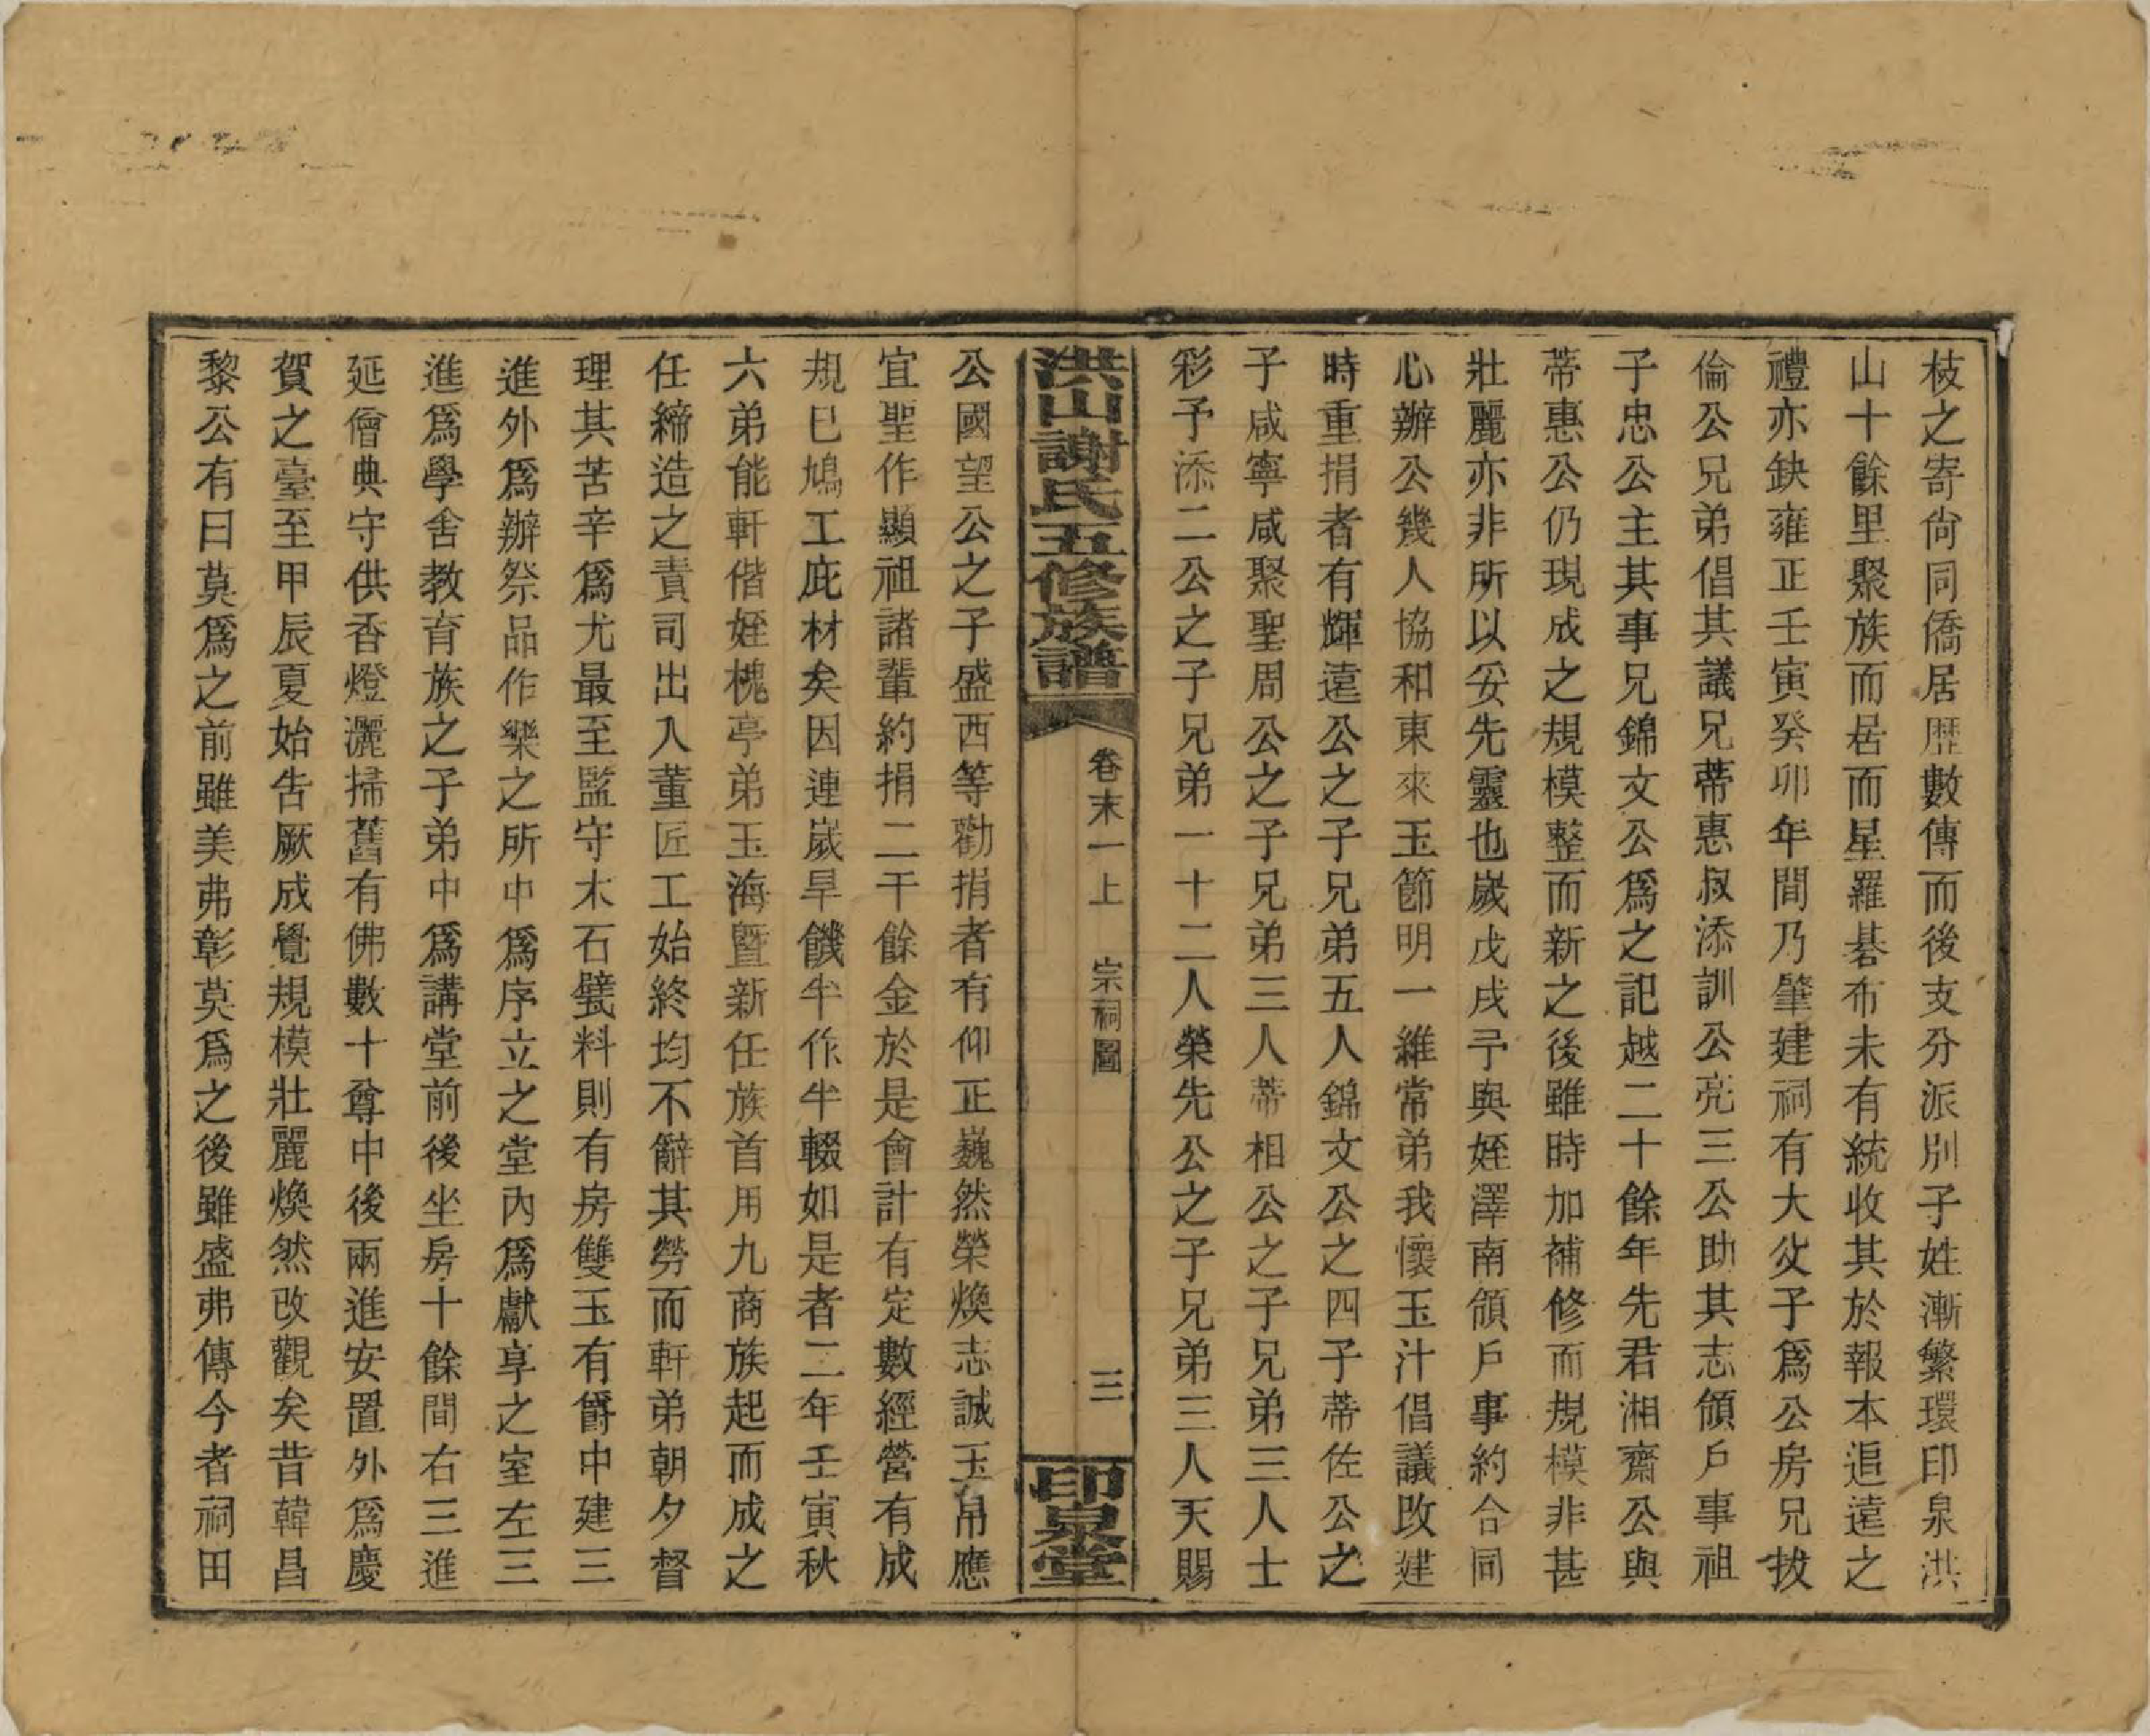 枝之寄尙同僑居歷數傳而後支分派別子姓漸繁環印泉洪
山十餘里聚族而居而星羅碁布未有統收其於報本追遠之
禮亦缺雍正壬寅癸卯年間乃肇建祠有大父子爲公房兄拔
倫公兄弟倡其議兄蒂惠叔添訓公亮三公助其志領戶事祖
子忠公主其事兄錦文公爲之記越二十餘年先君湘齋公與
蒂惠公仍現成之規模整而新之後雖時加補修而規模非甚
壯麗亦非所以妥先靈也嵗戊戌予與姪澤南領戶事約合同
心辦公幾人協和東來玉節明一維常弟我懷玉汁倡議改建
時重捐者有輝遠公之子兄弟五人錦文公之四子蒂佐公之
子咸寧咸聚聖周公之子兄弟三人蒂相公之子兄弟三人士
彩予添二公之子兄弟一十二人榮先公之子兄弟三人天賜
洪山謝氏五修族譜 卷末一上 宗祠圖 三 印泉堂
公國望公之子盛西等勸捐者有仰正巍然榮煥志誠玉帛應
宜聖作顯祖諸輩約捐二千餘金於是會計有定數經營有成
規已鳩工庇材矣因連嵗旱饑牛作牛輟如是者二年壬寅秋
六弟能軒偕姪槐亭弟玉海暨新任族首用九商族起而成之
任締造之責司出入董匠工始終均不辭其勞而軒弟朝夕督
理其苦辛爲尤最至監守木石甓料則有房雙玉有爵中建三
進外爲辦祭品作樂之所中爲序立之堂內爲獻享之室左三
進爲學舍教育族之子弟中爲講堂前後坐房十餘間右三進
延僧典守供香燈灑掃舊有佛數十尊中後兩進安置外爲慶
賀之臺至甲辰夏始告厥成覺規模壯麗煥然改觀矣昔韓昌
黎公有曰莫爲之前雖美弗彰莫爲之後雖盛弗傳今者祠田